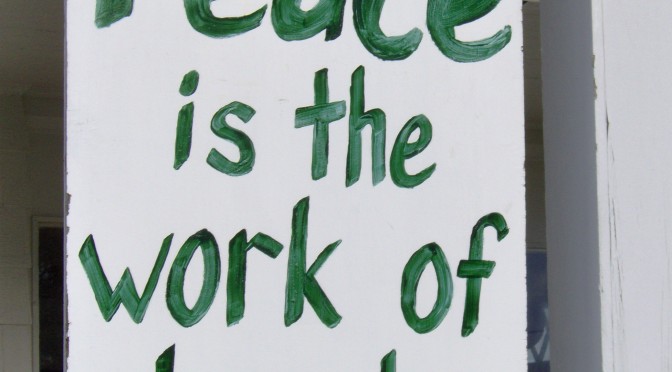 Peace
is the
work of